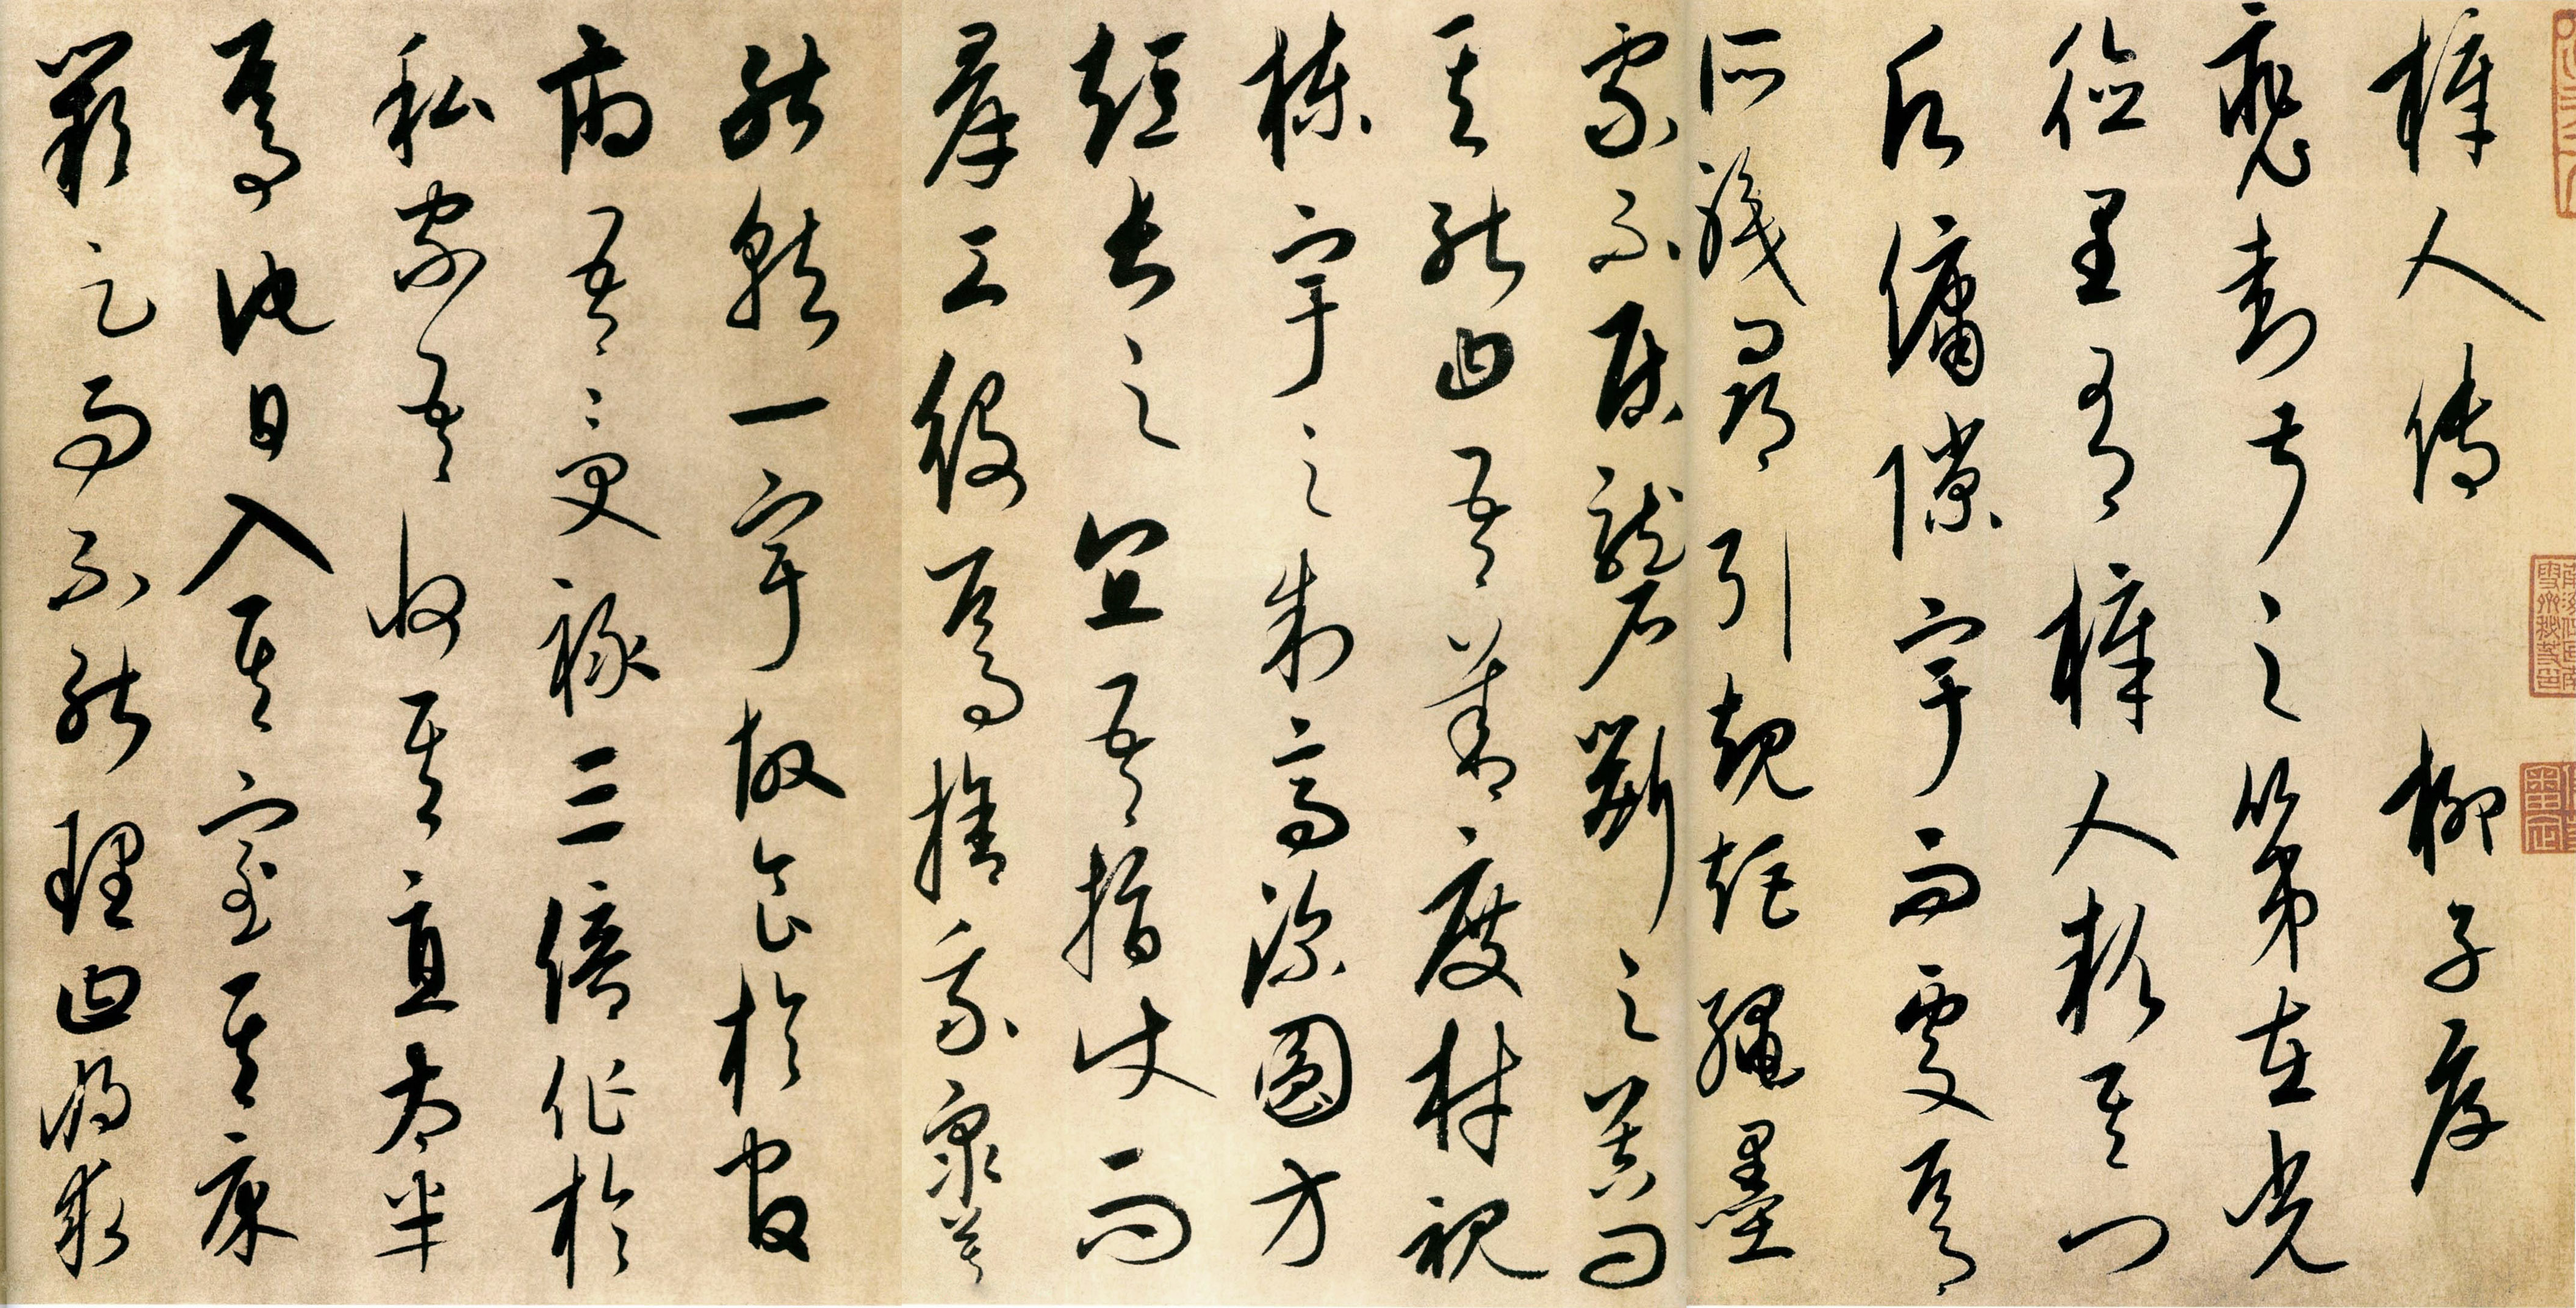 梓人傳 柳子厚
裴封叔之第在光
德里有梓人款其門
願傭隙宇而處焉
所職尋引規矩繩墨
家不居礱斲之器問
其能曰吾善度材視
棟宇之制高深圓方
短長之宜吾指使而
羣工役焉捨我衆莫
能就一宇故食於官
府吾受祿三倍作於
私家吾收其直太半
焉他日入其室其床
闕足而不能理曰將求